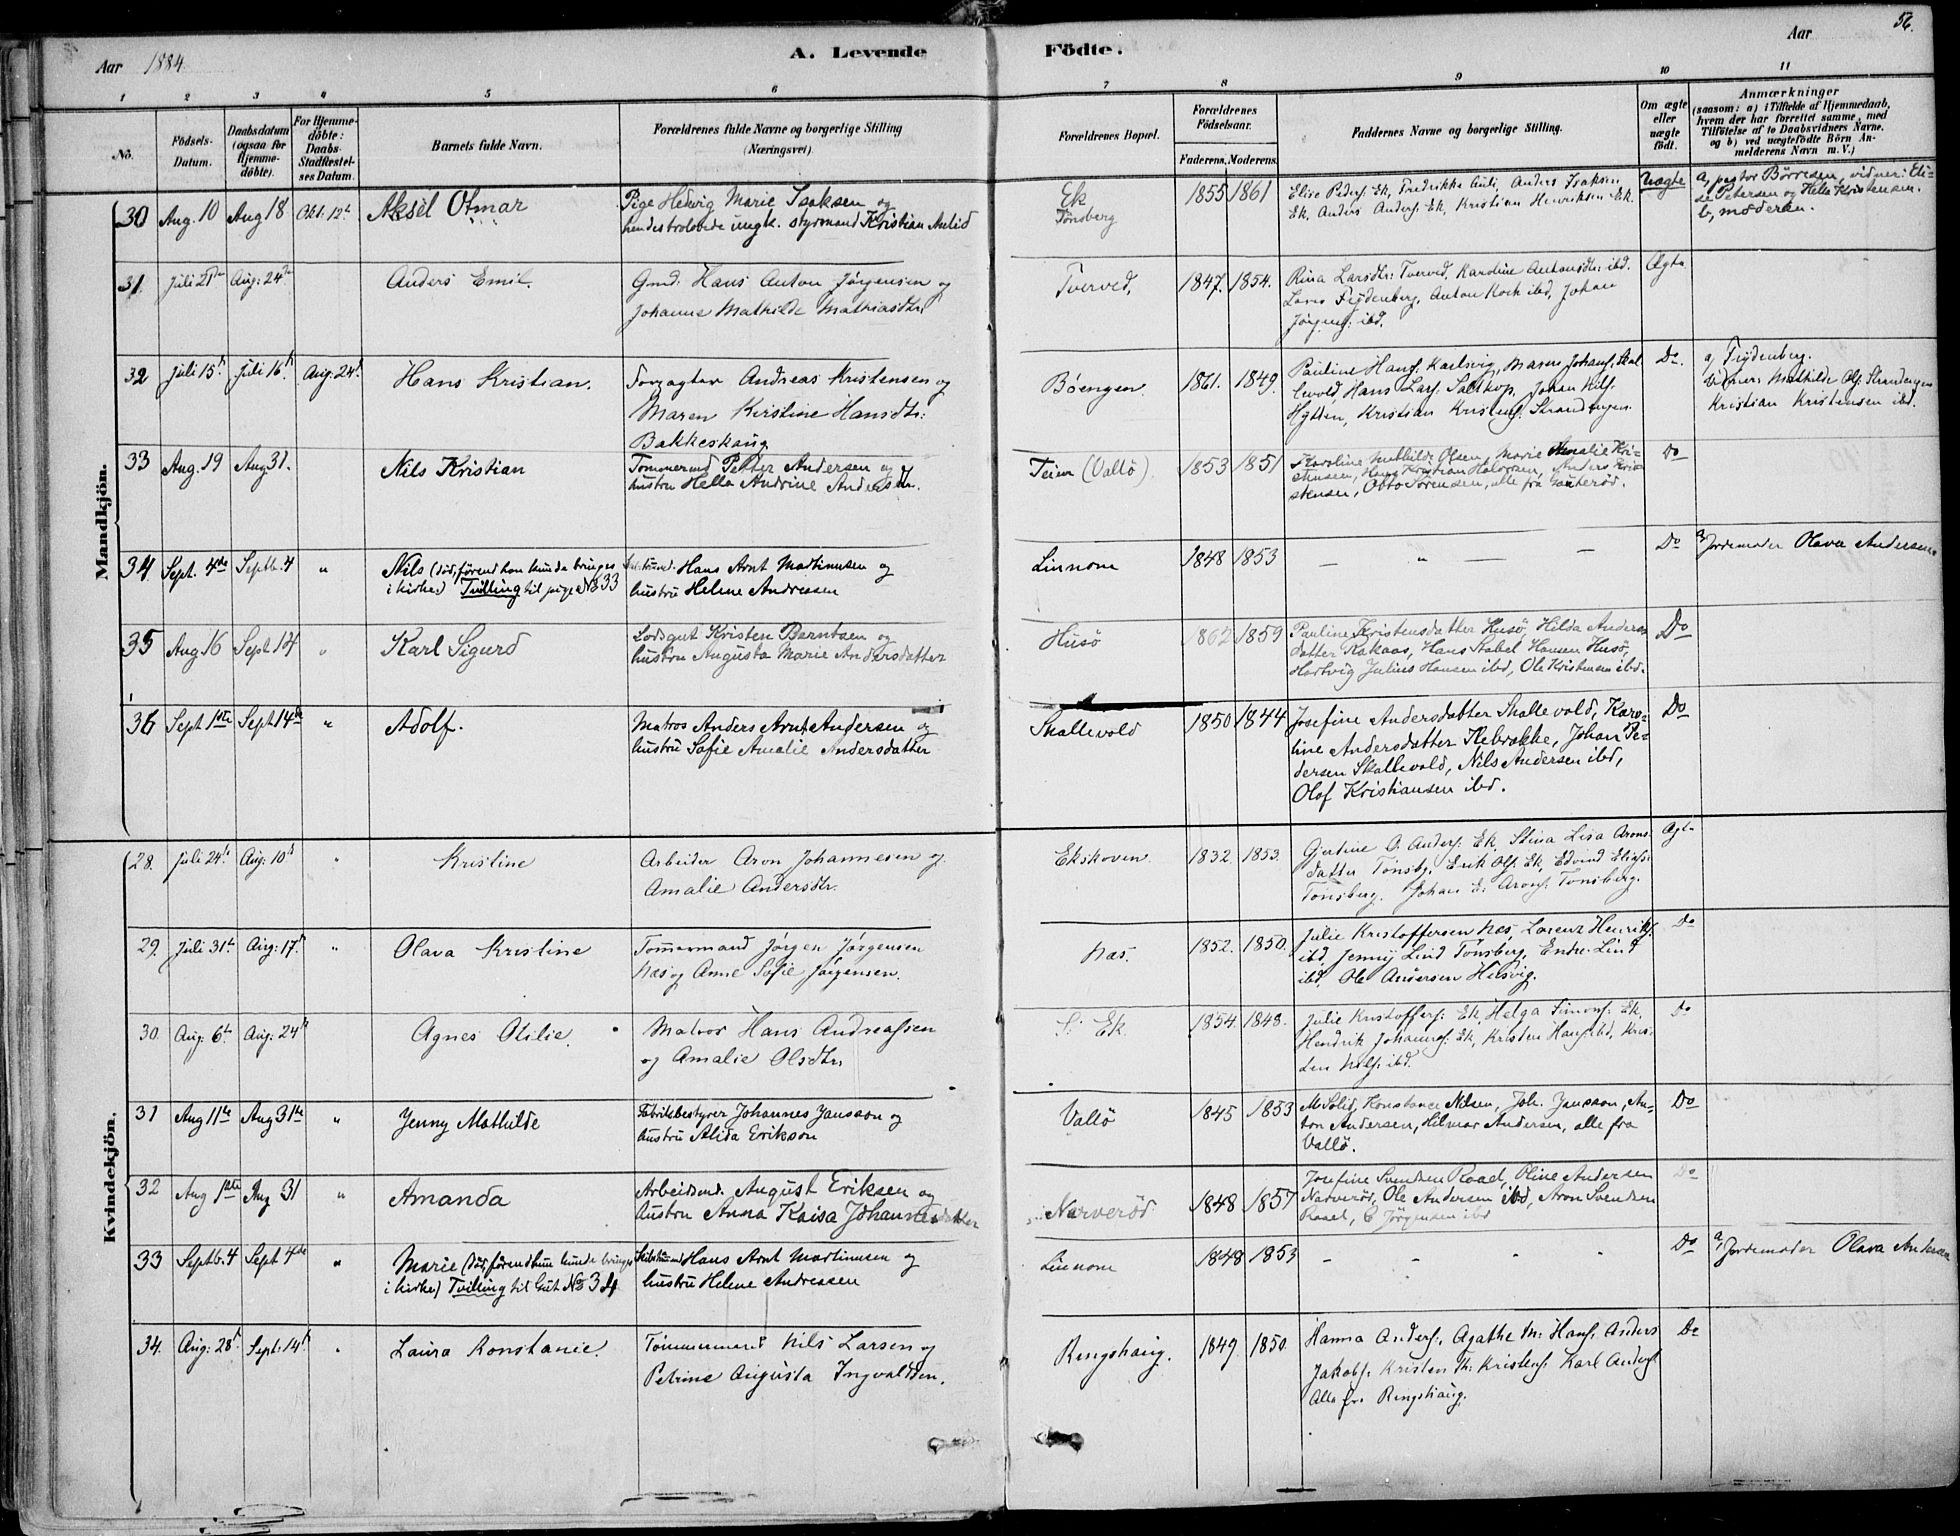 Aar 1884.
A. Levende Födte.
Aar
56.
1 2 3 4 5 6 7 8 9 10 11
No.
Födsels-Datum.
Daabsdatum (ogsaa for Hjemme-döbte).
For Hjemme-döbte: Daabs-Stadfæstel-ses Datum.
Barnets fulde Navn.
Forældrenes fulde Navne og borgerlige Stilling (Næringsvei).
Forældrenes Bopæl.
Forældrenes Födselsaar.
Faderens. Moderens.
Faddernes Navne og borgerlige Stilling.
Om ægte eller uægte födt.
Anmærkninger
(saasom: a) i Tilfælde af Hjemmedaab, hvem der har forrettet samme, med Tilföielse af to Daabsvidners Navne. og b) ved uægtefödte Börn An-melderens Navn m. V.)
Mandkjön.
30 Aug. 10 Aug 18 Okt. 12te Aksel Otmar
Pige Helvig Marie Isaksen og
hendes trolovede ungk. styrmand Kristian Aulid
Ek
Tönsberg
1855 1861
Elise Peders. Ek, Fredrikke Auli, Anders Isaksen
Ek, Anders Anders. Ek, Kristian Henriksen Ek.
Uægte
a, pastor Börresen, vidner: Eli-
se Petersen og Helle Kristensen.
b, moderen.
31. Juli 21de Aug: 24de Anders Emil.
Gmd. Hans Anton Jörgensen og
Johanne Mathilde Mathiasdtr.
Tverved,
1847. 1854.
Rina Larsdtr: Tverved, Karoline Antonsdtr: ibd.
Lars Frydenberg, Anton Koch ibd, Johan
Jörgens: ibd.
Ægte
32 Juli 15de Juli 16de Aug: 24de Hans Kristian.
Forpagter Andreas Kristensen og
Maren Kirstine Hansdtr:
Bakkeskaug
Böengen.
1861. 1849.
Pauline Hans. Karlsvig, Maren Johans. Skal-
levold, Hans Lars. Saltkop, Johan Nils.
Hytten, Kristian Kristens. Strandengen.
Do.
a, Frydenberg.
Vidner: Mathilde Ols. Strandengen
Kristian Kristensen ibd.
33 Aug. 19 Aug 31. Nils Kristian
Tömmermd Petter Andersen og
hustru Helle Andrine Andersdtr.
Teien (Vallö).
1853 1851
Karoline Mathilde Olsen, Marie Amalie Kri-
stensen, Hans Kristian Halvorsen, Anders Kri-
stensen, Otto Sörensen, alle fra Gauteröd.
Do
34 Sept. 4de Septb. 4 " Nils (död, förend han kunde bringes
i kirke) Tvilling til pige No 33
Hans Arnt Martinusen og
hustru Helene Andressen
Linnom
1848 1853
— " —
Do
a, Jordemoder Olava Andersen
35 Aug 16 Sept 14 " Karl Sigurd
Lodsgut Kristen Berntsen og
hustru Augusta Marie Andersdatter
Husö
1862 1859
Pauline Kristensdatter Husö, Hilda Anders-
datter Kakaas, Hans Stabel Hansen Husö,
Hartvig Julius Hansen ibd, Ole Kristensen ibd.
Do
36 Sept 1ste Sept 14de " Adolf.
Matros Anders Arnt Andersen og
hustru Sofie Amalie Andersdatter
Skallevold
1850 1844
Josefine Andersdatter Skallevold, Karo-
line Andersdatter Kebrakke, Johan Pe-
dersen Skallevold, Nils Andersen ibd,
Olof Kristiansen ibd.
Do
Kvindekjön.
28. Juli 24de Aug: 10de " Kristine
Arbeider Aron Johannesen og
Amalie Andersdtr.
Ekskoven.
1832. 1853.
Gjertine O. Anders. Ek, Stina Lisa Arons-
datter Tönsbg, Erik Ols. Ek, Edvind Elias.
Tönsberg. Johan E. Arons. Tönsberg.
Ægte
29. Juli 31te Aug: 17de " Olava Kristine
Tömmermand Jörgen Jörgensen
Næs og Anne Sofie Jörgensen.
Næs.
1852. 1850.
Julie Kristoffersen Næs Lorenz Henriks.
ibd, Jenny Lind Tönsberg, Endre Lind
ibd, Ole Andersen Husvig.
Do
30. Aug: 6te Aug: 24de Agnes Otilie.
Matros Hans Andreassen
og Amalie Olsdtr.
S: Ek
1854 1848.
Julie Kristoffers. Ek, Helga Simons. Ek,
Hendrik Johanns. Ek, Kristen Hans. ibd, Kris-
ten Nils. ibd.
Do
31 Aug 11te Aug 31te " Jenny Mathilde
Fabrikbestyrer Johannes Jansson og
hustru Alida Erikson
Vallö
1845 1853
M. Solid, Konstance Nilsen, Joh. Jansson, An-
ton Andersen, Hilmar Andersen, alle fra
Vallö.
Do
32 Aug 1ste Aug 31 " Amanda
Arbeidsmd. August Eriksen og
hustru Anna Kaisa Johannesdatter
Narveröd
1848 1857
Josefine Svendsen Raael, Oline Andersen
Narveröd, Ole Andersen ibd, Aron Svendsen
Raael, C Jörgensen ibd
Do
33 Septb. 4 Sept 4de " Marie (död, förend hun kunde bringes
i kirke) Tvilling til Gut No 34
Hans Arnt Martinusen og
hustru Helene Andressen
Linnom
1848 1853
- - " "
Do
a, Jordemoder Olava Andersen
34. Aug: 28de Sept: 14de " Laura Konstanse.
Tömmermand Nils Larsen og
Petrine Augusta Ingvaldsen.
Ringshaug.
1849. 1850.
Hanna Anders., Agathe M. Hans. Anders
Jakobs. Kristen Th. Kristens. Karl Anders.
Alle fra Ringshaug.
Do